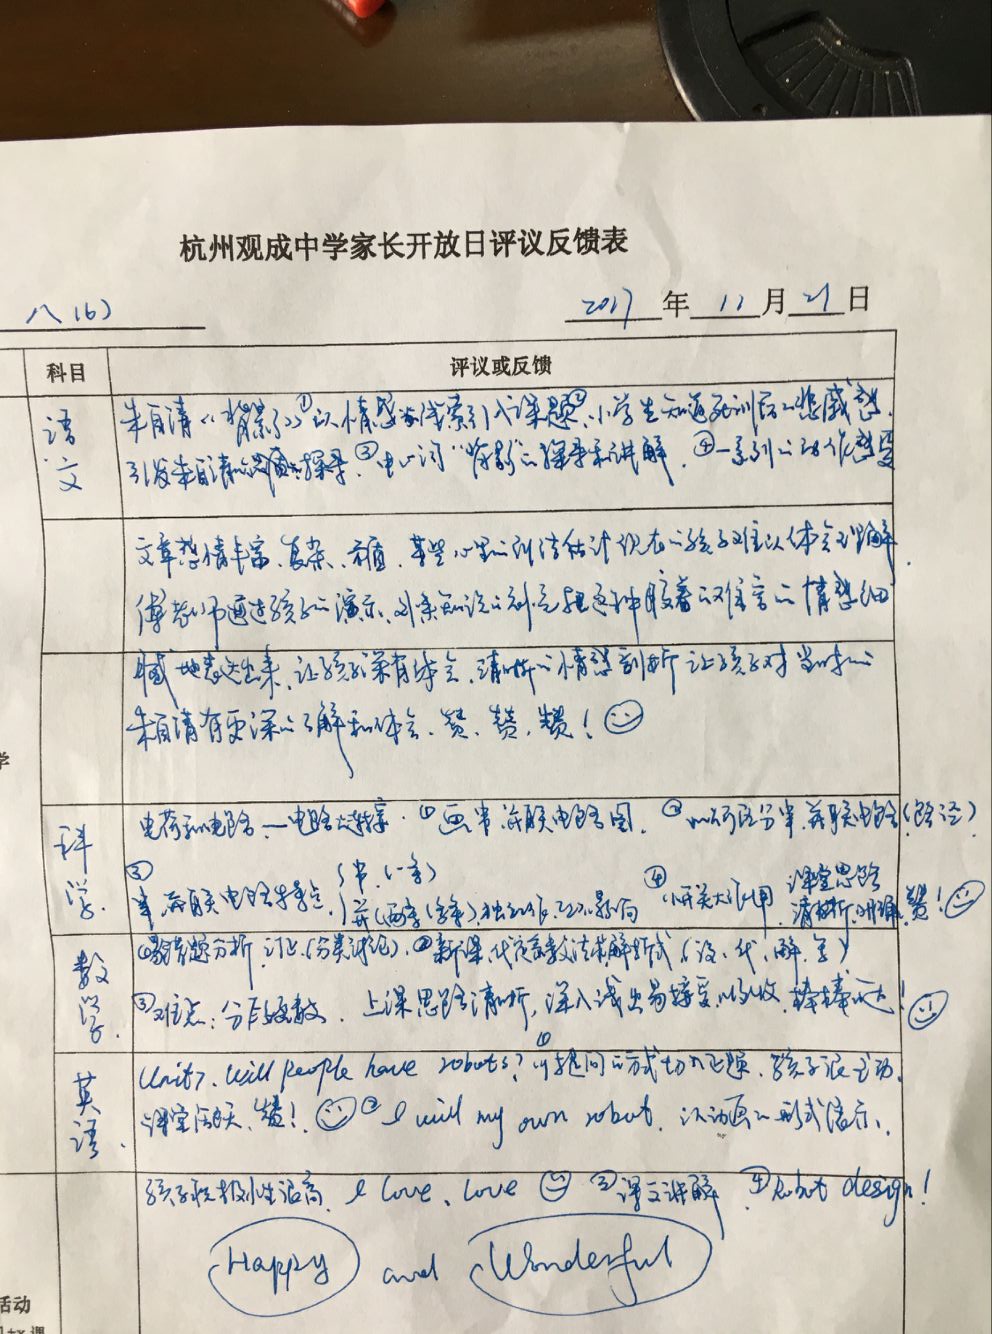 杭州观成中学家长开放日评议反馈表
八(6)
2017年11月21日
科目 评议或反馈
语文
朱自清《背影》①以情感为线索引入课题②小学生知道
引发朱自清的 探寻③中心词"背影"的探寻和讲解.④一系列的动作感受
文章感情丰富、复杂、 某些 估计现在的孩子难以体会和理解.
傅老师通过孩子的演示、 把这种胶着的难言的情感细
腻地表达出来,让孩子深有体会,清晰的情感剖析让孩子对当时的
朱自清有更深的了解和体会、赞、赞、赞!
学
科学.
电荷和电路—电路 .①画串并联电路图.②如何区分串、并联电路(路径)
③
串、并联电路特点.
串.(一条)
并(两条(多条)独立工作,互不影响
④ 小开关大作用
课堂思路
清晰.明确.赞!
数学.
① 题分析、订正(分类讨论).②新课、代定系数法求解析式(设、代、解、写)
③难点:分段函数. 上课思路清晰,深入浅出易接受吸收.棒棒哒!
英语.
Unit7. Will people have robots?①以提问的方式切入正题.孩子很主动.
课堂活跃、赞! ②I will my own robot. 以动画的形式演示.
孩子积极性很高 I love, love ③课文讲解 ④Robot design!
Happy and Wonderful
活动